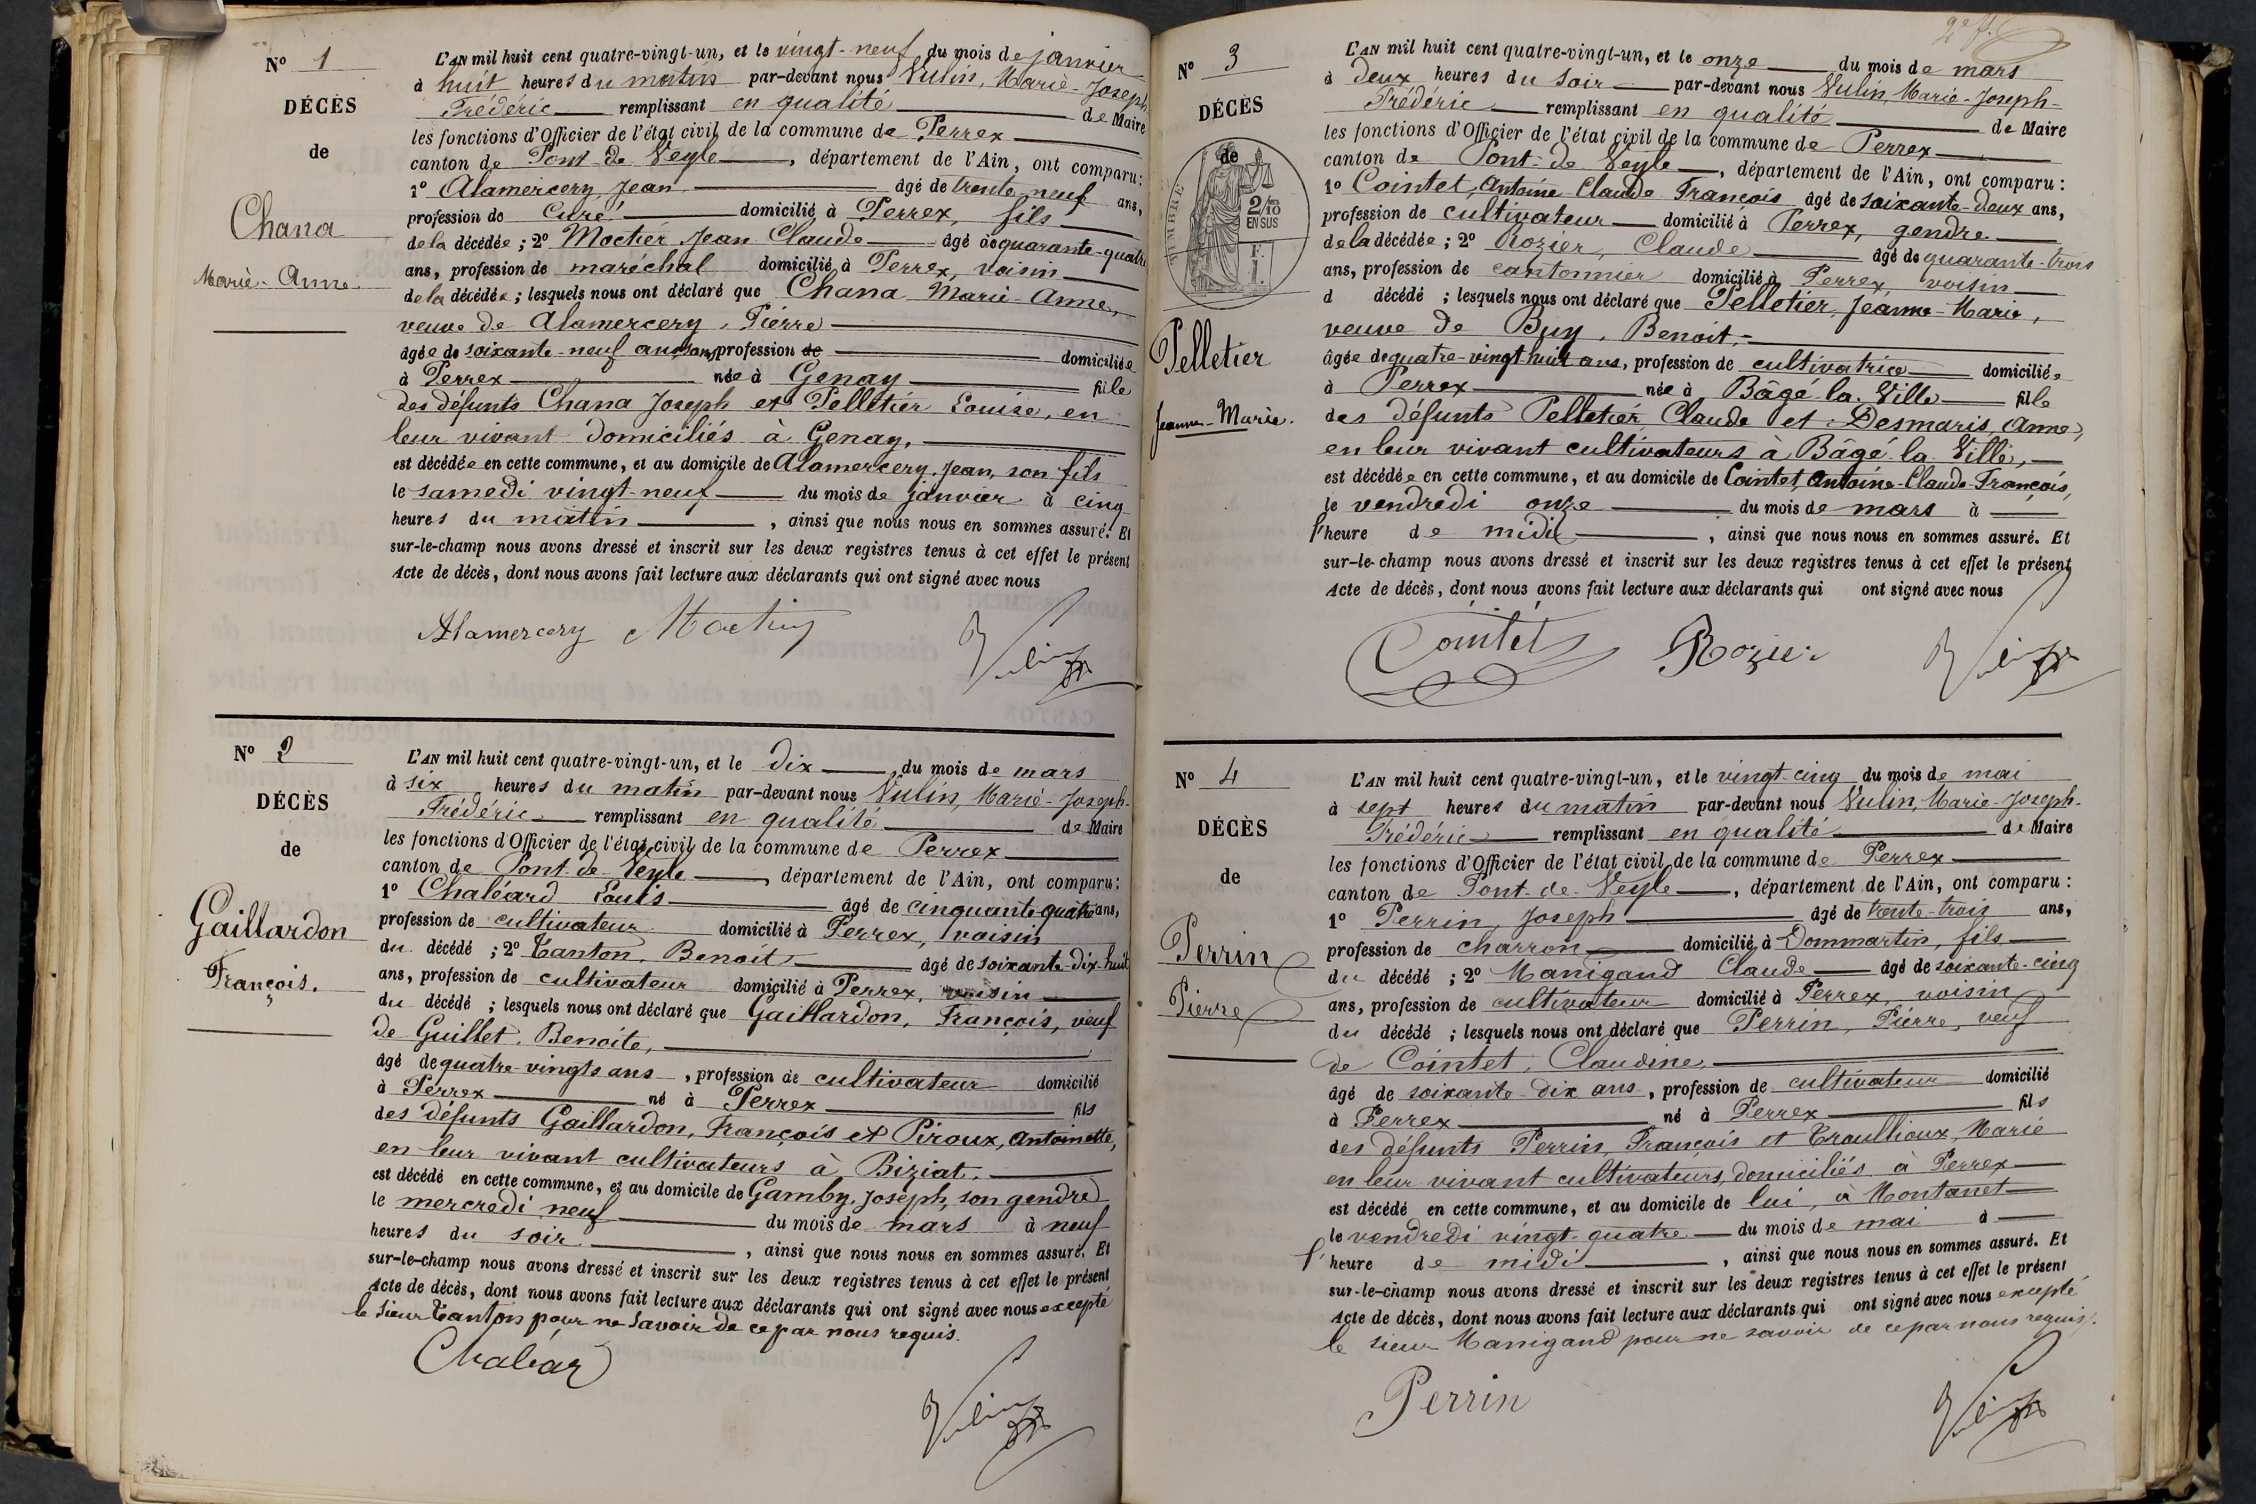 N° 1
DÉCÈS
de
Chana
Marie-Anne.
L'AN mil huit cent quatre-vingt-un, et le vingt-neuf du mois de janvier
à huit heures du matin par-devant nous Vulin, Marie-Joseph
Frédéric remplissant en qualité de Maire
les fonctions d'Officier de l'état civil de la commune de Perrex
canton de Pont-de-Veyle, département de l'Ain, ont comparu:
1° Alamercery Jean âgé de trente neuf ans,
profession de Curé domicilié à Perrex, fils
de la décédée; 2° Moctier Jean Claude âgé de quarante-quatre
ans, profession de maréchal domicilié à Perrex, voisin
de la décédée; lesquels nous ont déclaré que Chana Marie-Anne,
veuve de Alamercery, Pierre
âgée de soixante-neuf ans, profession de domiciliée
à Perrex née à Genay fille
des défunts Chana Joseph et Pelletier Louise, en
leur vivant domiciliés à Genay,
est décédée en cette commune, et au domicile de Alamercery, Jean, son fils
le samedi vingt-neuf du mois de janvier à cinq
heures du matin, ainsi que nous nous en sommes assuré. Et
sur-le-champ nous avons dressé et inscrit sur les deux registres tenus à cet effet le présent
Acte de décès, dont nous avons fait lecture aux déclarants qui ont signé avec nous
Alamercery Moctier Vulin
N° 2
DÉCÈS
de
Gaillardon
François.
L'AN mil huit cent quatre-vingt-un, et le dix du mois de mars
à six heures du matin par-devant nous Vulin, Marie-Joseph-
Frédéric remplissant en qualité de Maire
les fonctions d'Officier de l'état civil de la commune de Perrex
canton de Pont-de-Veyle, département de l'Ain, ont comparu:
1° Chaléard Louis âgé de cinquante-quatre ans,
profession de cultivateur domicilié à Perrex, voisin
du décédé; 2° Tanton, Benoit âgé de soixante-dix-huit
ans, profession de cultivateur domicilié à Perrex, voisin
du décédé; lesquels nous ont déclaré que Gaillardon, François, veuf
de Guillet, Benoite,
âgé de quatre-vingts ans, profession de cultivateur domicilié
à Perrex né à Perrex fils
des défunts Gaillardon, François et Piroux, Antoinette,
en leur vivant cultivateurs à Biziat,
est décédé en cette commune, et au domicile de Gamby, Joseph, son gendre
le mercredi neuf du mois de mars à neuf
heures du soir, ainsi que nous nous en sommes assuré. Et
sur-le-champ nous avons dressé et inscrit sur les deux registres tenus à cet effet le présent
Acte de décès, dont nous avons fait lecture aux déclarants qui ont signé avec nous excepté
le sieur Tanton pour ne savoir de ce par nous requis.
Chaléar Vulin
N° 3
DÉCÈS
de
TIMBRE
2/10
EN SUS
F.
1.
Pelletier
Jeanne-Marie.
2e f.
L'AN mil huit cent quatre-vingt-un, et le onze du mois de mars
à deux heures du soir par-devant nous Vulin, Marie-Joseph-
Frédéric remplissant en qualité de Maire
les fonctions d'Officier de l'état civil de la commune de Perrex
canton de Pont-de-Veyle, département de l'Ain, ont comparu:
1° Cointet, Antoine Claude François âgé de soixante-deux ans,
profession de cultivateur domicilié à Perrex, gendre
de la décédée; 2° Rozier, Claude âgé de quarante-trois
ans, profession de cantonnier domicilié à Perrex, voisin
d décédé; lesquels nous ont déclaré que Pelletier, Jeanne-Marie,
veuve de Buy, Benoit,
âgée de quatre-vingt-huit ans, profession de cultivatrice domiciliée
à Perrex née à Bâgé-la-Ville fille
des défunts Pelletier, Claude et Desmaris, Anne,
en leur vivant cultivateurs à Bâgé-la-Ville,
est décédée en cette commune, et au domicile de Cointet, Antoine-Claude-François,
le vendredi onze du mois de mars à
l'heure de midi, ainsi que nous nous en sommes assuré. Et
sur-le-champ nous avons dressé et inscrit sur les deux registres tenus à cet effet le présent
Acte de décès, dont nous avons fait lecture aux déclarants qui ont signé avec nous
Cointet Rozier Vulin
N° 4
DÉCÈS
de
Perrin
Pierre
L'AN mil huit cent quatre-vingt-un, et le vingt-cinq du mois de mai
à sept heures du matin par-devant nous Vulin, Marie-Joseph-
Frédéric remplissant en qualité de Maire
les fonctions d'Officier de l'état civil de la commune de Perrex
canton de Pont-de-Veyle, département de l'Ain, ont comparu:
1° Perrin, Joseph âgé de trente-trois ans,
profession de charron domicilié à Dommartin, fils
du décédé; 2° Manigand Claude âgé de soixante-cinq
ans, profession de cultivateur domicilié à Perrex, voisin
du décédé; lesquels nous ont déclaré que Perrin, Pierre, veuf
de Cointet, Claudine,
âgé de soixante-dix ans, profession de cultivateur domicilié
à Perrex né à Perrex fils
des défunts Perrin, François et Troullioux, Marie
en leur vivant cultivateurs, domiciliés à Perrex
est décédé en cette commune, et au domicile de lui, à Montanet
le vendredi vingt-quatre du mois de mai à
l'heure de midi, ainsi que nous nous en sommes assuré. Et
sur-le-champ nous avons dressé et inscrit sur les deux registres tenus à cet effet le présent
Acte de décès, dont nous avons fait lecture aux déclarants qui ont signé avec nous excepté
le sieur Manigand pour ne savoir de ce par nous requis.
Perrin Vulin